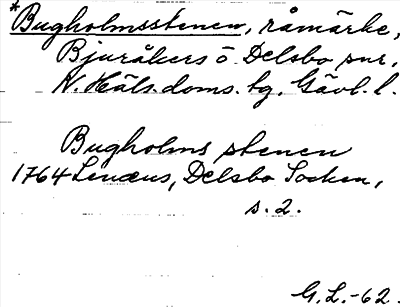 *Bugholmsstenen, råmärke,
Bjuråkers o. Delsbo snr,
N. Häls. doms. tg, Gävl. l.
Bugholms stenen
1764 Lenæus, Delsbo Socken,
s. 2.
G. L. -62.